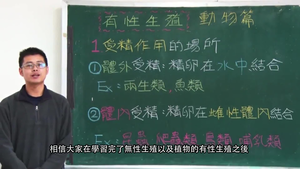 有性生殖 動物篇
1 受精作用的場所
①體外受精:精卵在水中結合
Ex:兩生類、魚類
②體內受精:精卵在雌性體內結合
Ex:昆蟲、爬蟲類、鳥類、哺乳類
相信大家在學習完了無性生殖以及植物的有性生殖之後